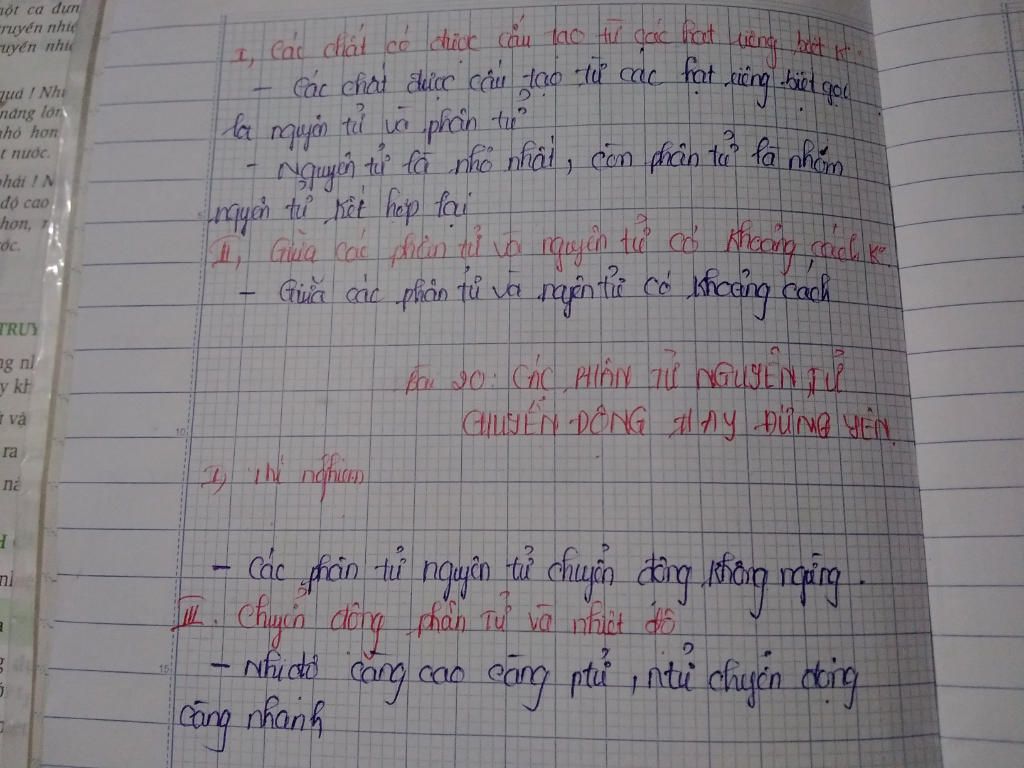 một ca đun
truyền nhiệ
quá ! Nhi
năng lớn
nhỏ hơn
t nước.
phải ! N
độ cao
hơn, n
ớc.
TRUY
ng nh
y kh
t và
ra
I, Các chất có được cấu tạo từ các hạt riêng biệt k.
- Các chất được cấu tạo từ các hạt riêng biệt gọi
là nguyên tử và phân tử
- Nguyên tử là nhỏ nhất, còn phân tử là nhóm
nguyên tử kết hợp lại
II, Giữa các phân tử và nguyên tử có khoảng cách k.
- Giữa các phân tử và ngyên tử có khoảng cách
Bài 20: CÁC PHÂN TỬ NGUYÊN TỬ
CHUYỂN ĐỘNG HAY ĐỨNG YÊN
10
I, Thí nghiệm
- Các phân tử nguyên tử chuyển động không ngừng.
III. Chuyển động phân tử và nhiệt độ
15
- Nhiđộ càng cao càng ptử, ntử chuyển động
càng nhanh